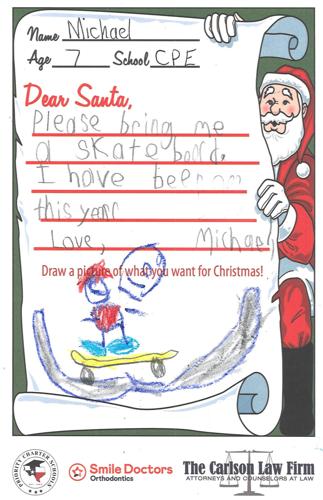 Name Michael
Age 7 School CPE
Dear Santa,
Please bring me
a skate board.
I have been
this year
Love, Michael
Draw a picture of what you want for Christmas!
PRIORITY CHARTER SCHOOLS
Smile Doctors
Orthodontics
The Carlson Law Firm
ATTORNEYS AND COUNSELORS AT LAW